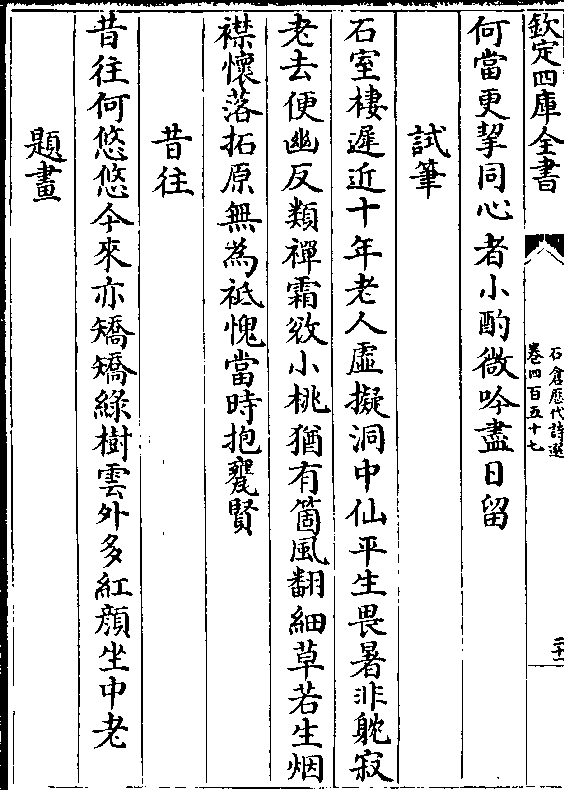 欽定四庫全書
石倉歷代詩選
卷四百五十七
二十二
何當更挈同心者小酌微吟盡日留
試筆
石室棲遲近十年老人虛擬洞中仙平生畏暑非躭寂
老去便幽反類禪霜欲小桃猶有箇風翻細草若生烟
襟懷落拓原無為祇愧當時抱甕賢
昔往
昔往何悠悠今來亦矯矯綠樹雲外多紅顔坐中老
題畫